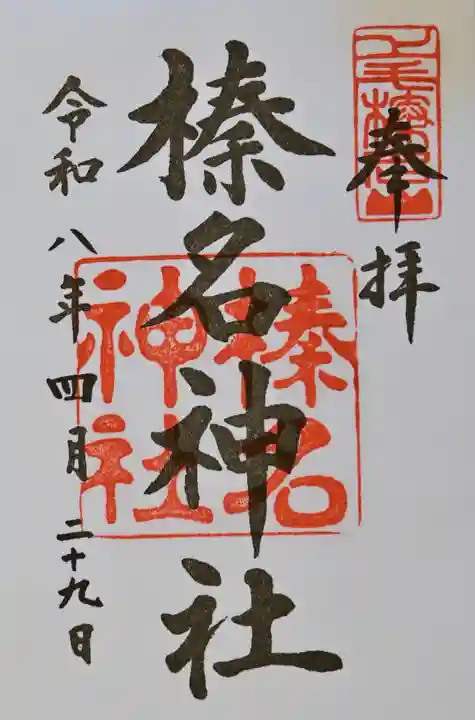 奉拝
上毛榛名山
榛名神社
榛名
神社
令和八年四月二十九日